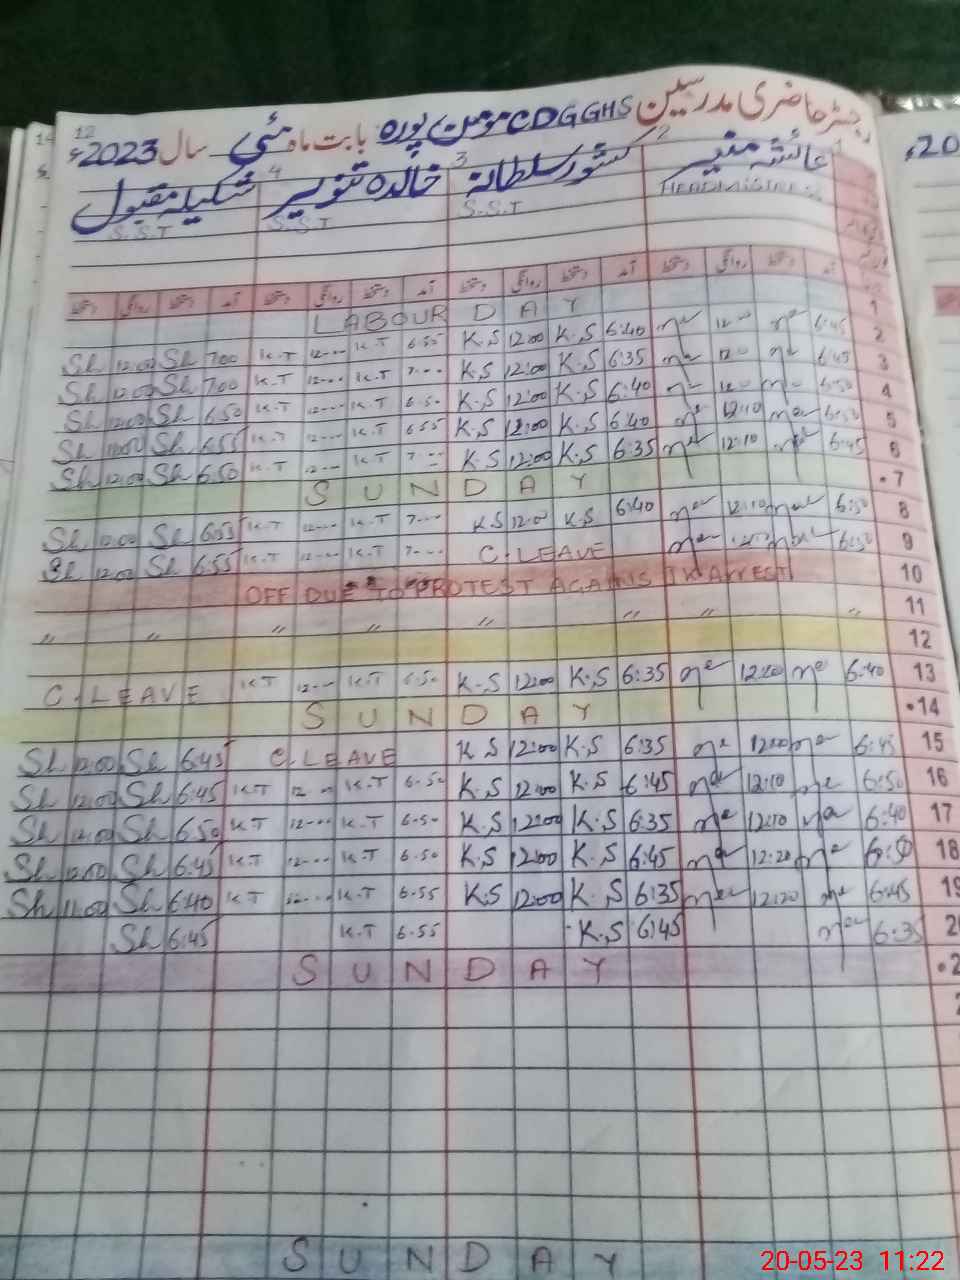 رجسٹر حاضری مدرسین CDGGHS مومن پورہ بابت ماہ مئی سال 2023ء
عائشہ منیر کشور سلطانہ خالدہ تنویر شکیلہ مقبول
HEADMISTRESS S.S.T S.S.T S.S.T
آمد دستخط روانگی دستخط آمد دستخط روانگی دستخط آمد دستخط روانگی دستخط آمد دستخط روانگی دستخط
LABOUR DAY 1
Sh 12:00 Sh 7:00 K.T 12--- K.T 6.55 K.S 12:00 K.S 6:40 6:45 2
Sh 12:00 Sh 7:00 K.T 12--- K.T 7--- K.S 12:00 K.S 6:35 6:45 3
Sh 12:00 Sh 6:50 K.T 12--- K.T 6.50 K.S 12:00 K.S 6:40 6:50 4
Sh Sh 6:55 K.T 12--- K.T 6.55 K.S 12:00 K.S 6:40 12:10 6:50 5
Sh 12:00 Sh 6:50 K.T 12--- K.T 7--- K.S 12:00 K.S 6:35 12:10 6:45 6
SUNDAY 7
Sh Sh 6:55 K.T 12--- K.T 7--- K.S 12:00 K.S 6:40 12:10 6:50 8
Sh 12:00 Sh 6:55 K.T 12--- K.T 7--- C.LEAVE 6:50 9
OFF DUE TO PROTEST AGAINS IK ARREST 10
〃 〃 〃 〃 〃 〃 〃 〃 11
12
C.LEAVE K.T 12--- K.T 6.50 K.S 12:00 K.S 6:35 12:20 6:40 13
SUNDAY 14
Sh 12:00 Sh 6:45 C.LEAVE K.S 12:00 K.S 6:35 12:00 6:45 15
Sh 12:00 Sh 6:45 K.T 12--- K.T 6.50 K.S 12:00 K.S 6:45 12:10 6:50 16
Sh 12:00 Sh 6:50 K.T 12--- K.T 6.50 K.S 12:00 K.S 6:35 12:10 6:40 17
Sh Sh 6:45 K.T 12--- K.T 6.50 K.S 12:00 K.S 6:45 12:20 18
Sh 11:00 Sh 6:40 K.T 12--- K.T 6.55 K.S 12:00 K.S 6:35 12:20 6:45 19
Sh 6:45 K.T 6.55 K.S 6:45 6:35
SUNDAY
SUNDAY
20-05-23 11:22